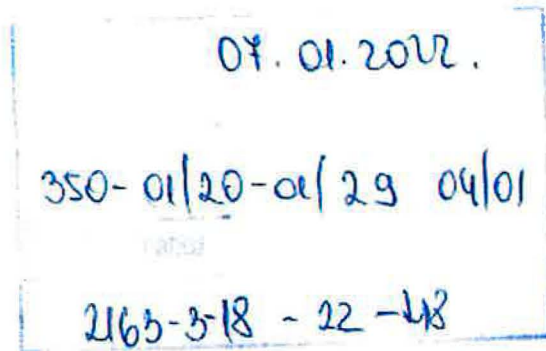 07. 01. 2022.
350-01/20-01/29 04/01
2163-3-18 - 22 -48